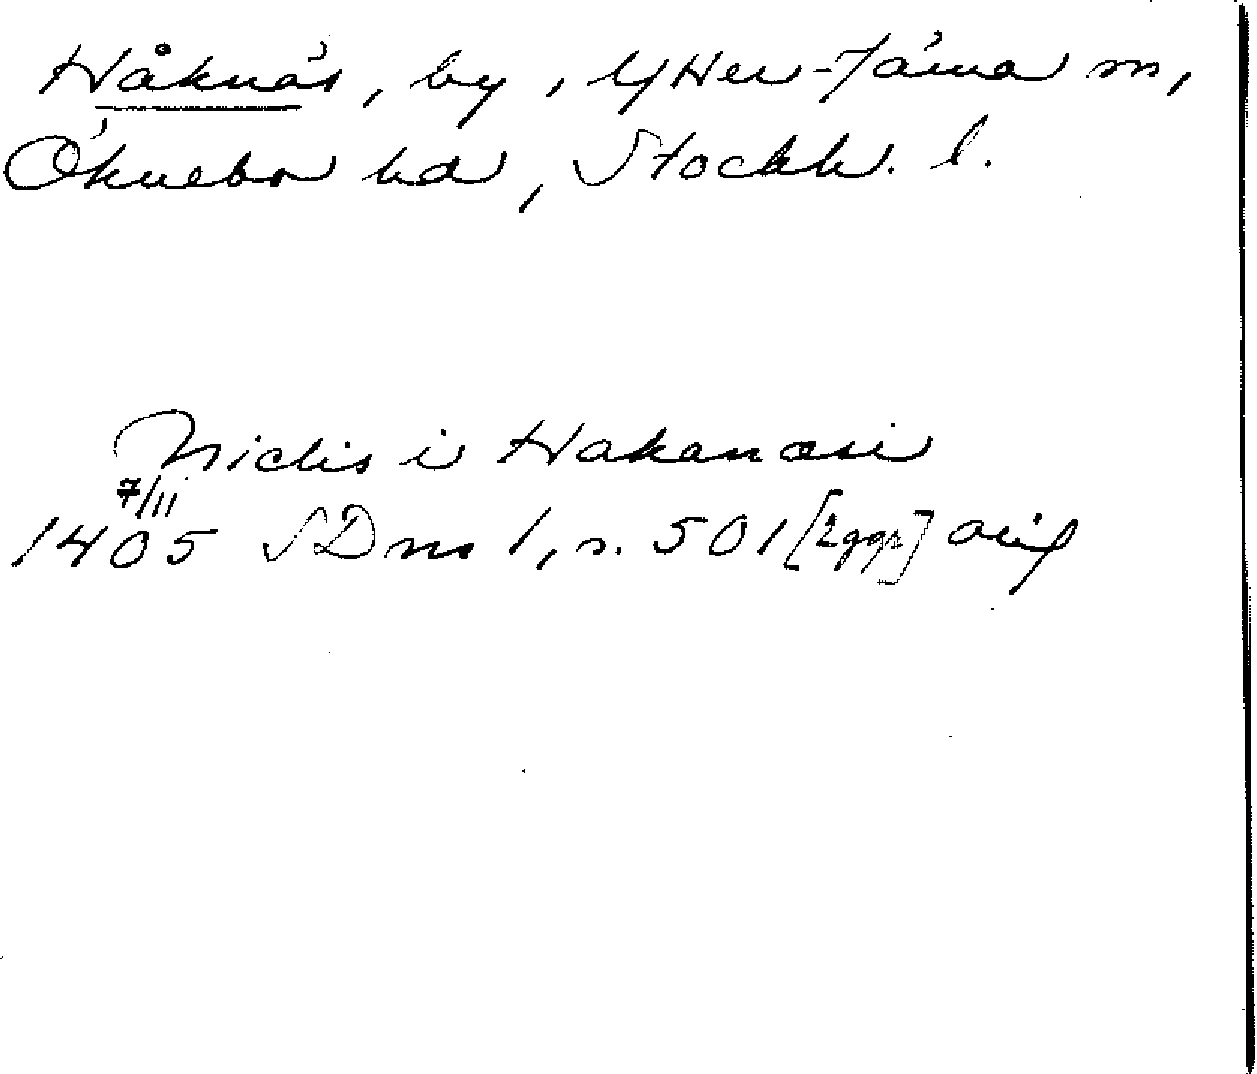 Håknäs, by, Ytter-Järna sn,
Öknebo hd, Stockh. l.
Niclis i Hakanæsi
7/11
1405 SDns 1, s. 501 [Egge] avs